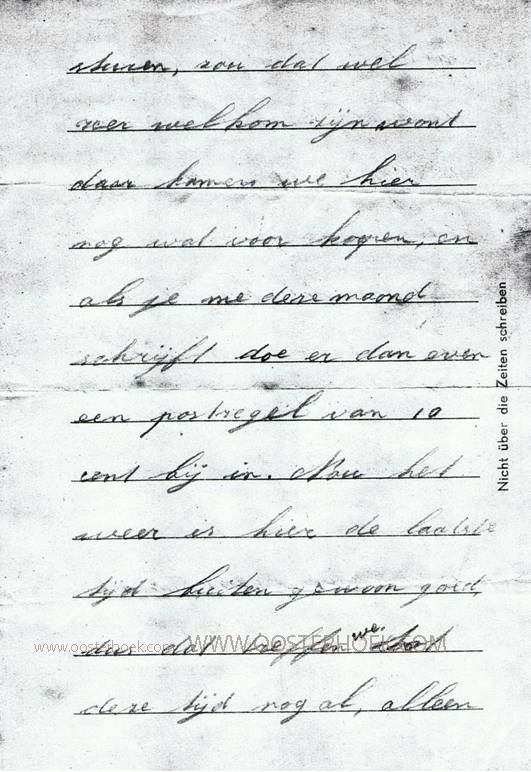 sturen, zou dat wel
zeer welkom zijn, want
daar kunnen we hier
nog wat voor kopen, en
als je me deze maand
schrijft doe er dan even
een postzegel van 10
cent bij in. Nou het
weer is hier de laatste
tijd buiten gewoon goed,
dus dat treffen we.
deze tijd nog al, alleen
Nicht über die Zeiten schreiben
www.oosterhoek.com WWW.OOSTERHOEK.COM